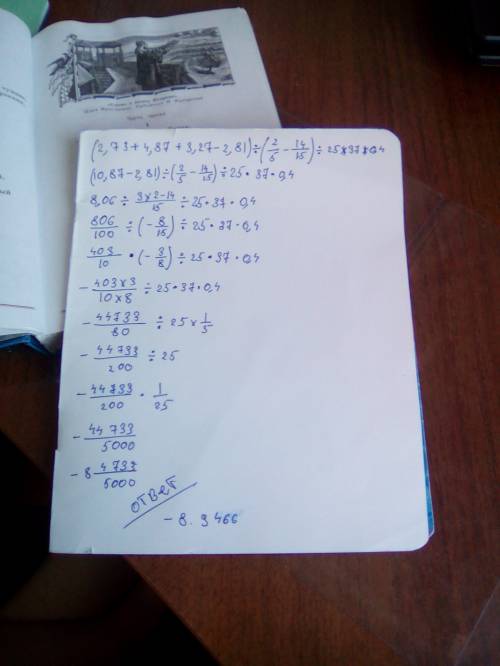 (2,73+4,87+3,27-2,81)÷(2/5-14/15)÷25*37*0,4
(10,87-2,81)÷(2/5-14/15)÷25·37·0,4
8,06÷3×2-14/15÷25·37·0,4
806/100÷(-8/15)÷25·37·0,4
403/10·(-3/8)÷25·37·0,4
-403×3/10×8÷25·37·0,4
-44733/80÷25×1/5
-44733/200÷25
-44733/200·1/25
-44733/5000
-8 4733/5000
ответ
-8.9466